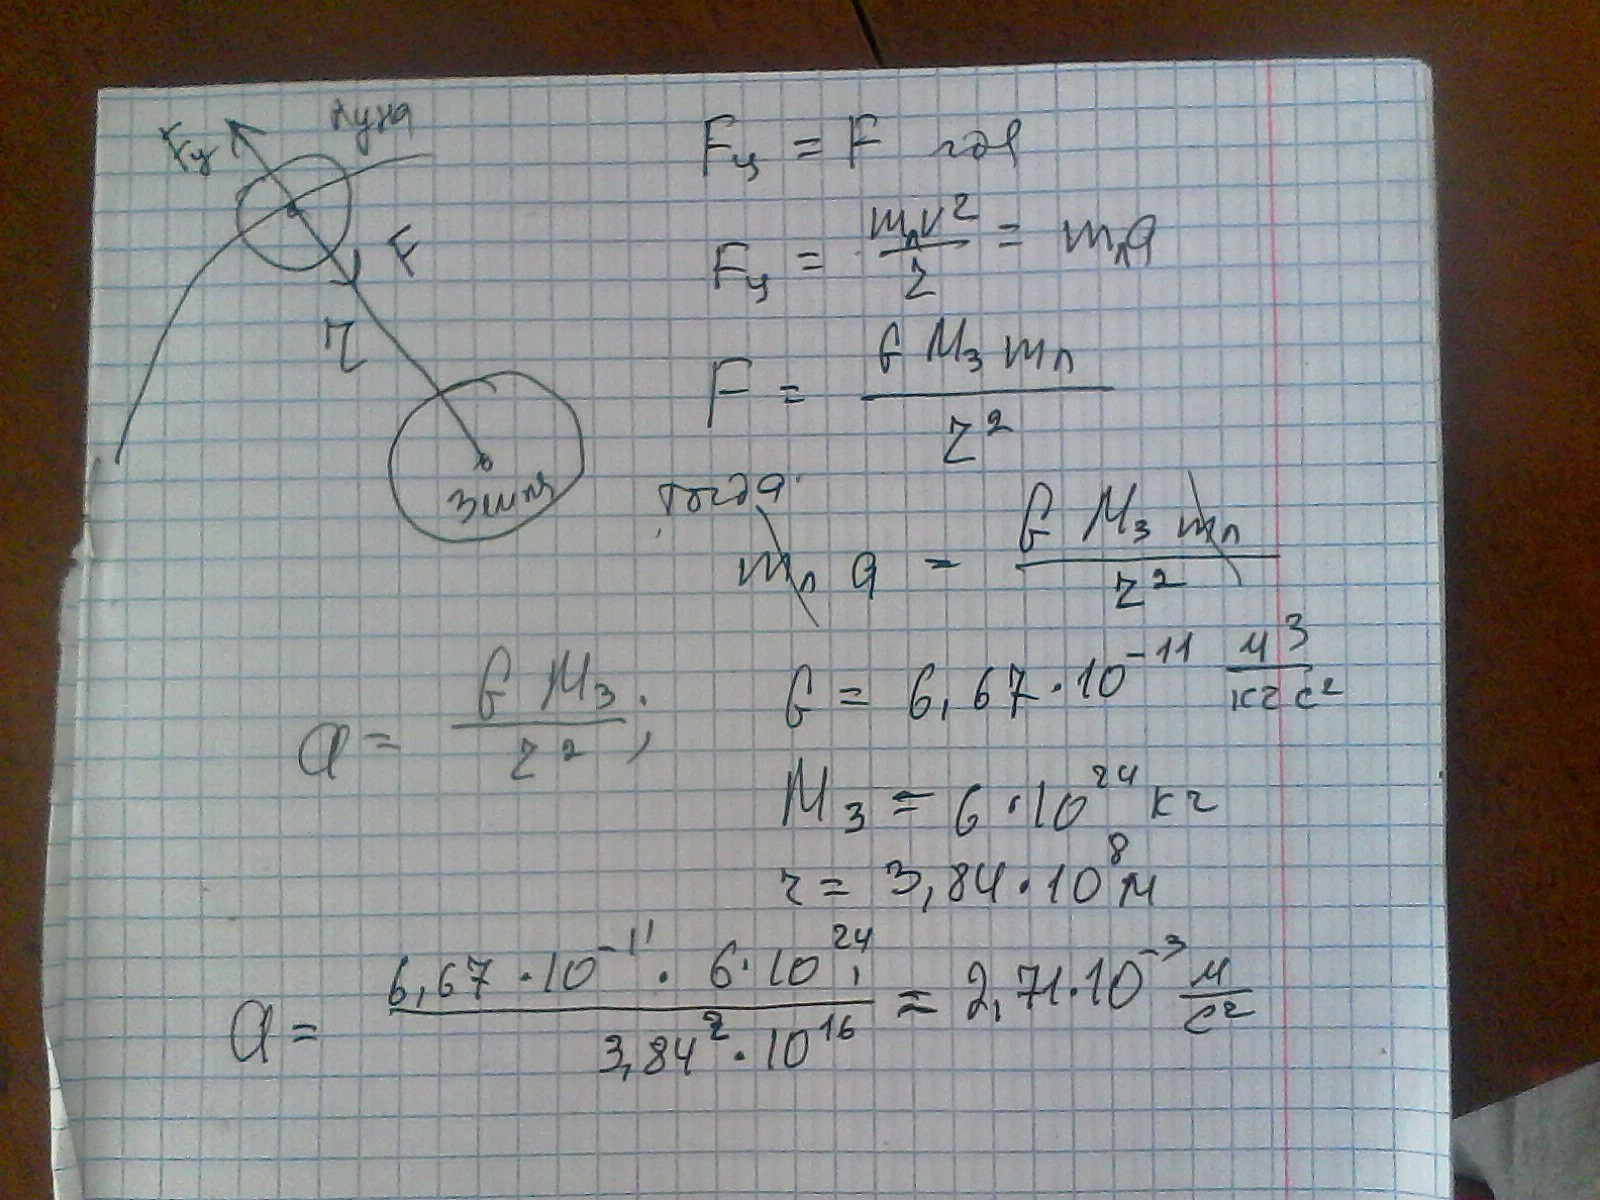 Луна
Fц
F
r
Земля
Fц = F где
Fц = mлv²/r = mлa
F = G Mз mл / r²
тогда
mл a = G Mз mл / r²
a = G Mз / r²;
G = 6,67·10⁻¹¹ м³/кг с²
Mз = 6·10²⁴ кг
r = 3,84·10⁸ м
a = 6,67·10⁻¹¹ · 6·10²⁴ / 3,84²·10¹⁶ = 2,71·10⁻³ м/с²